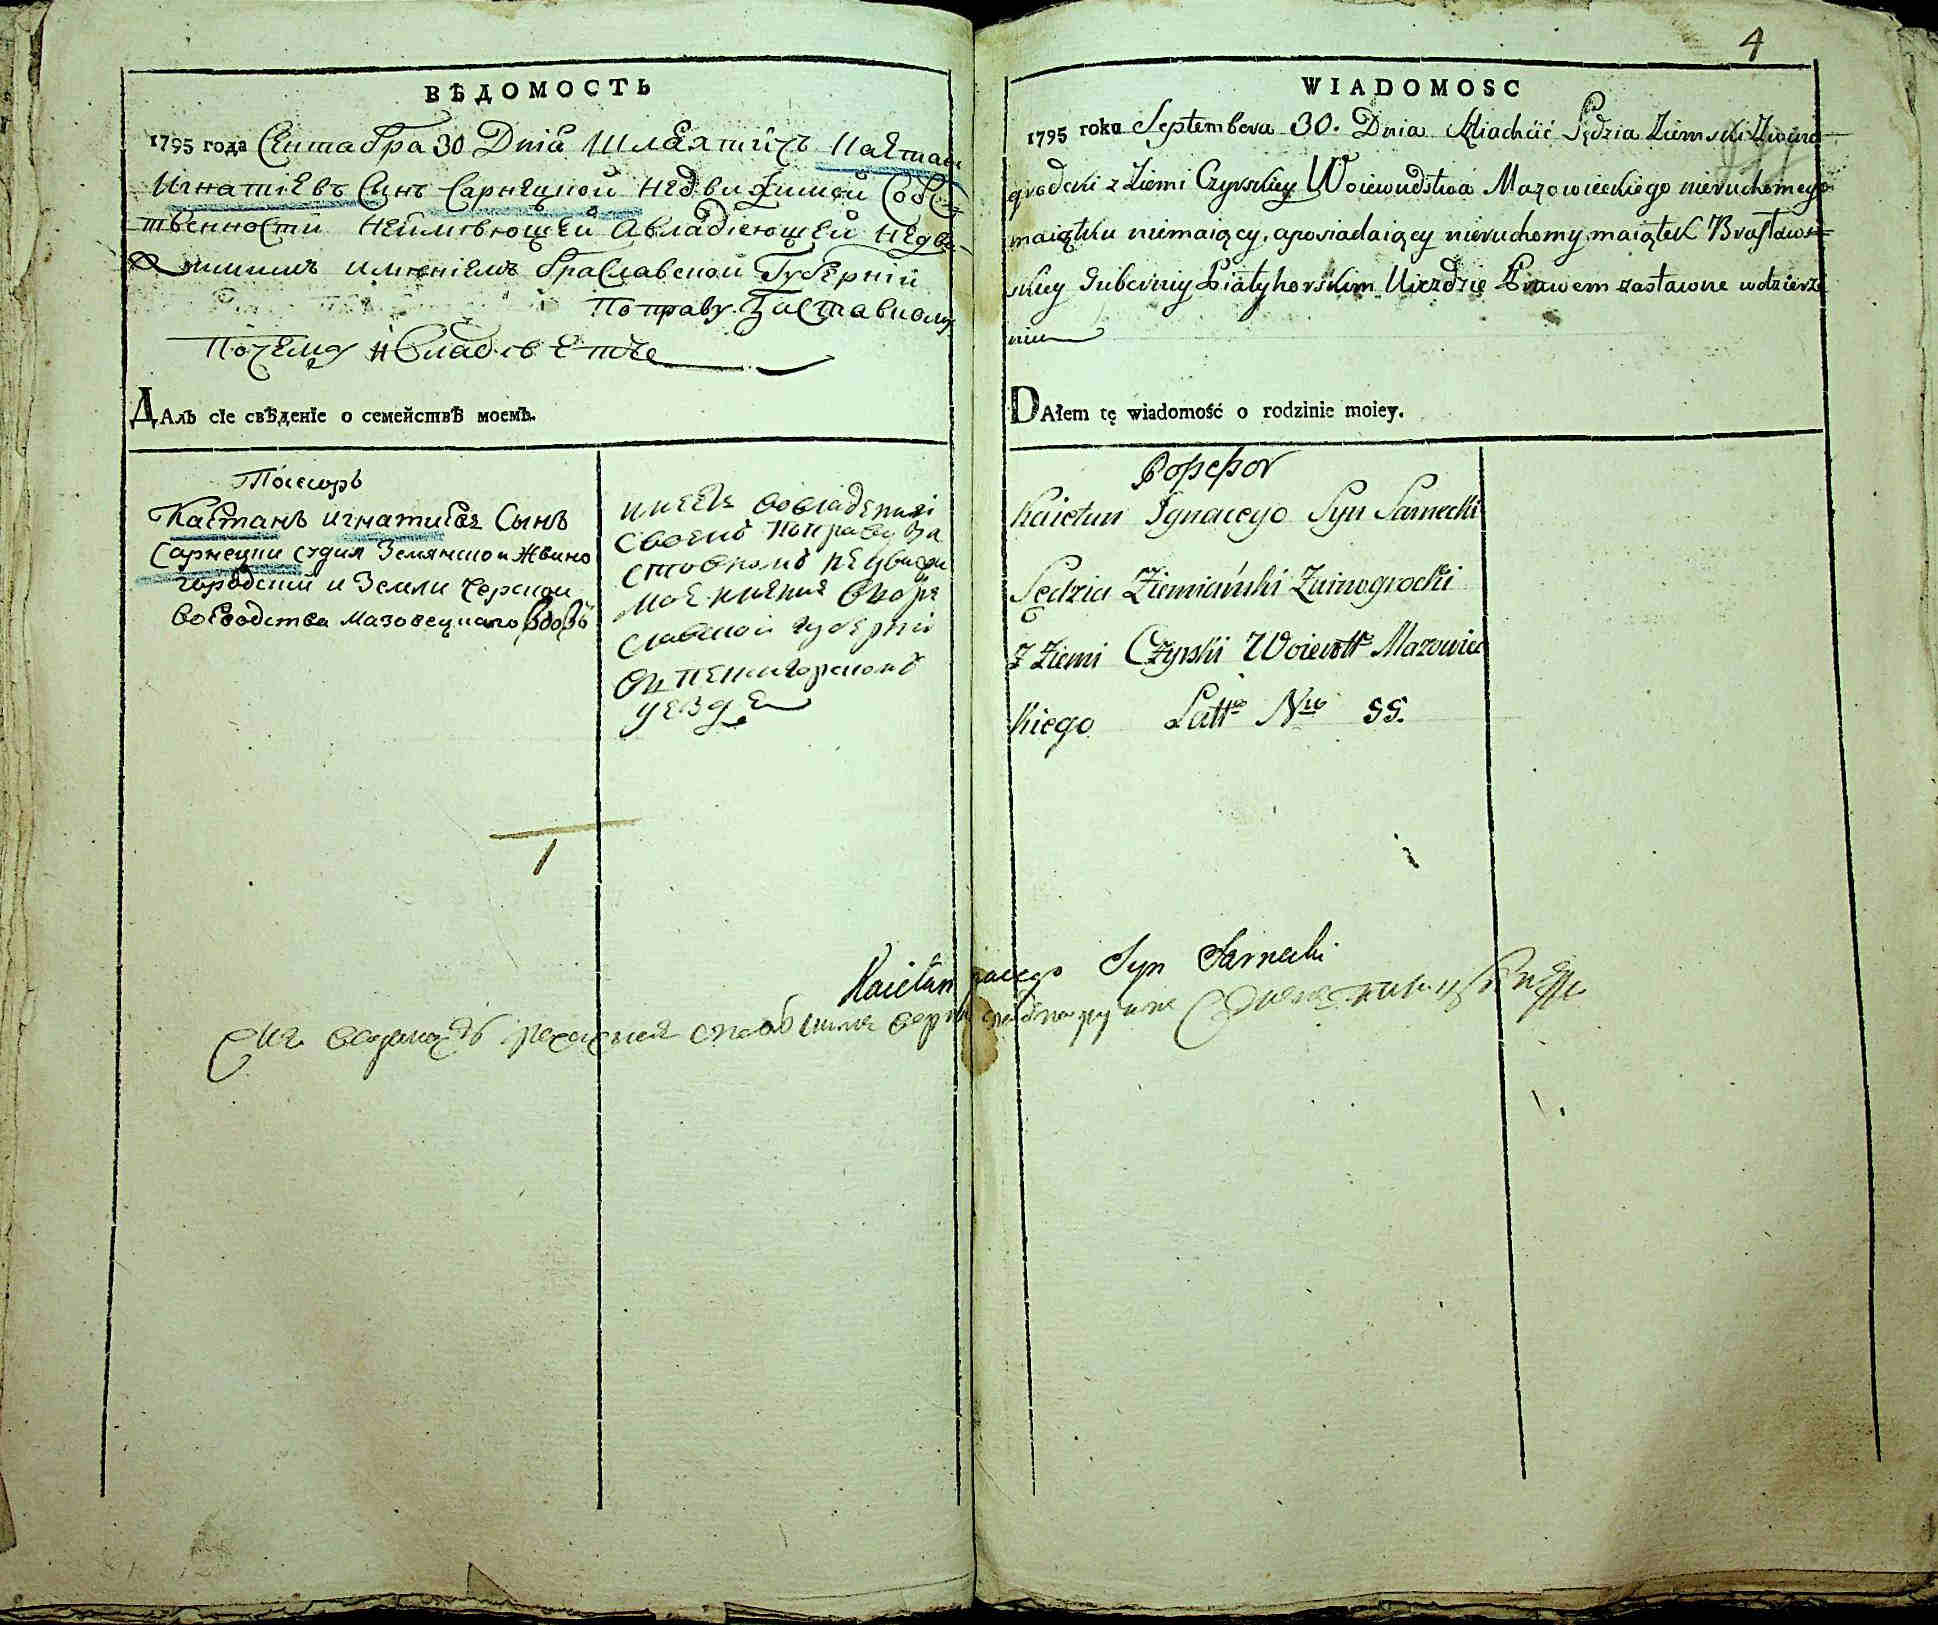 ВѢДОМОСТЬ
1795 года Сентабра 30 Дніа Шляхтичъ Каетан
Игнатіевъ Синъ Сарнецкой недвижимой Собс
твенности неимѣющей Авладѣющей недви
жимимъ имѣніемъ Браславской Губерніи
Поправу Заставному
Почему и Владѣетъ
Далъ сіе свѣденіе о семействѣ моемъ.
Посесоръ
Каетанъ игнатиевъ Сынъ
Сарнецки судия Земянскои Звино
городский и Земли Черскои
Воеводства Мазовецкаго
имеетъ вовладении
своемъ поправу За
ставному недвижи
мое имение Бра
славской губернии
Впетигорскомъ
уезде
4
WIADOMOSC
1795 roku Septembera 30. Dnia Szliachcic Sędzia Ziemski Zwino
grodzki z Ziemi Czyrskiey Woiewudstwa Mazowieckiego nieruchomego
maiątku niemaiący, aposiadaiący nieruchomy maiątek w Brasławs=
skiey Guberniy Piatyhorskim Uiezdzie Prawem zastawne wdzierża
niu
Dałem tę wiadomość o rodzinie moiey.
Possessor
Kaietan Ignacego Syn Sarnecki
Sędzia Ziemiański Zwinogrodzki
z Ziemi Czyrski Woiewtt Mazowiec
kiego Latt No 55.
Kaietan Ignacego Syn Sarnecki